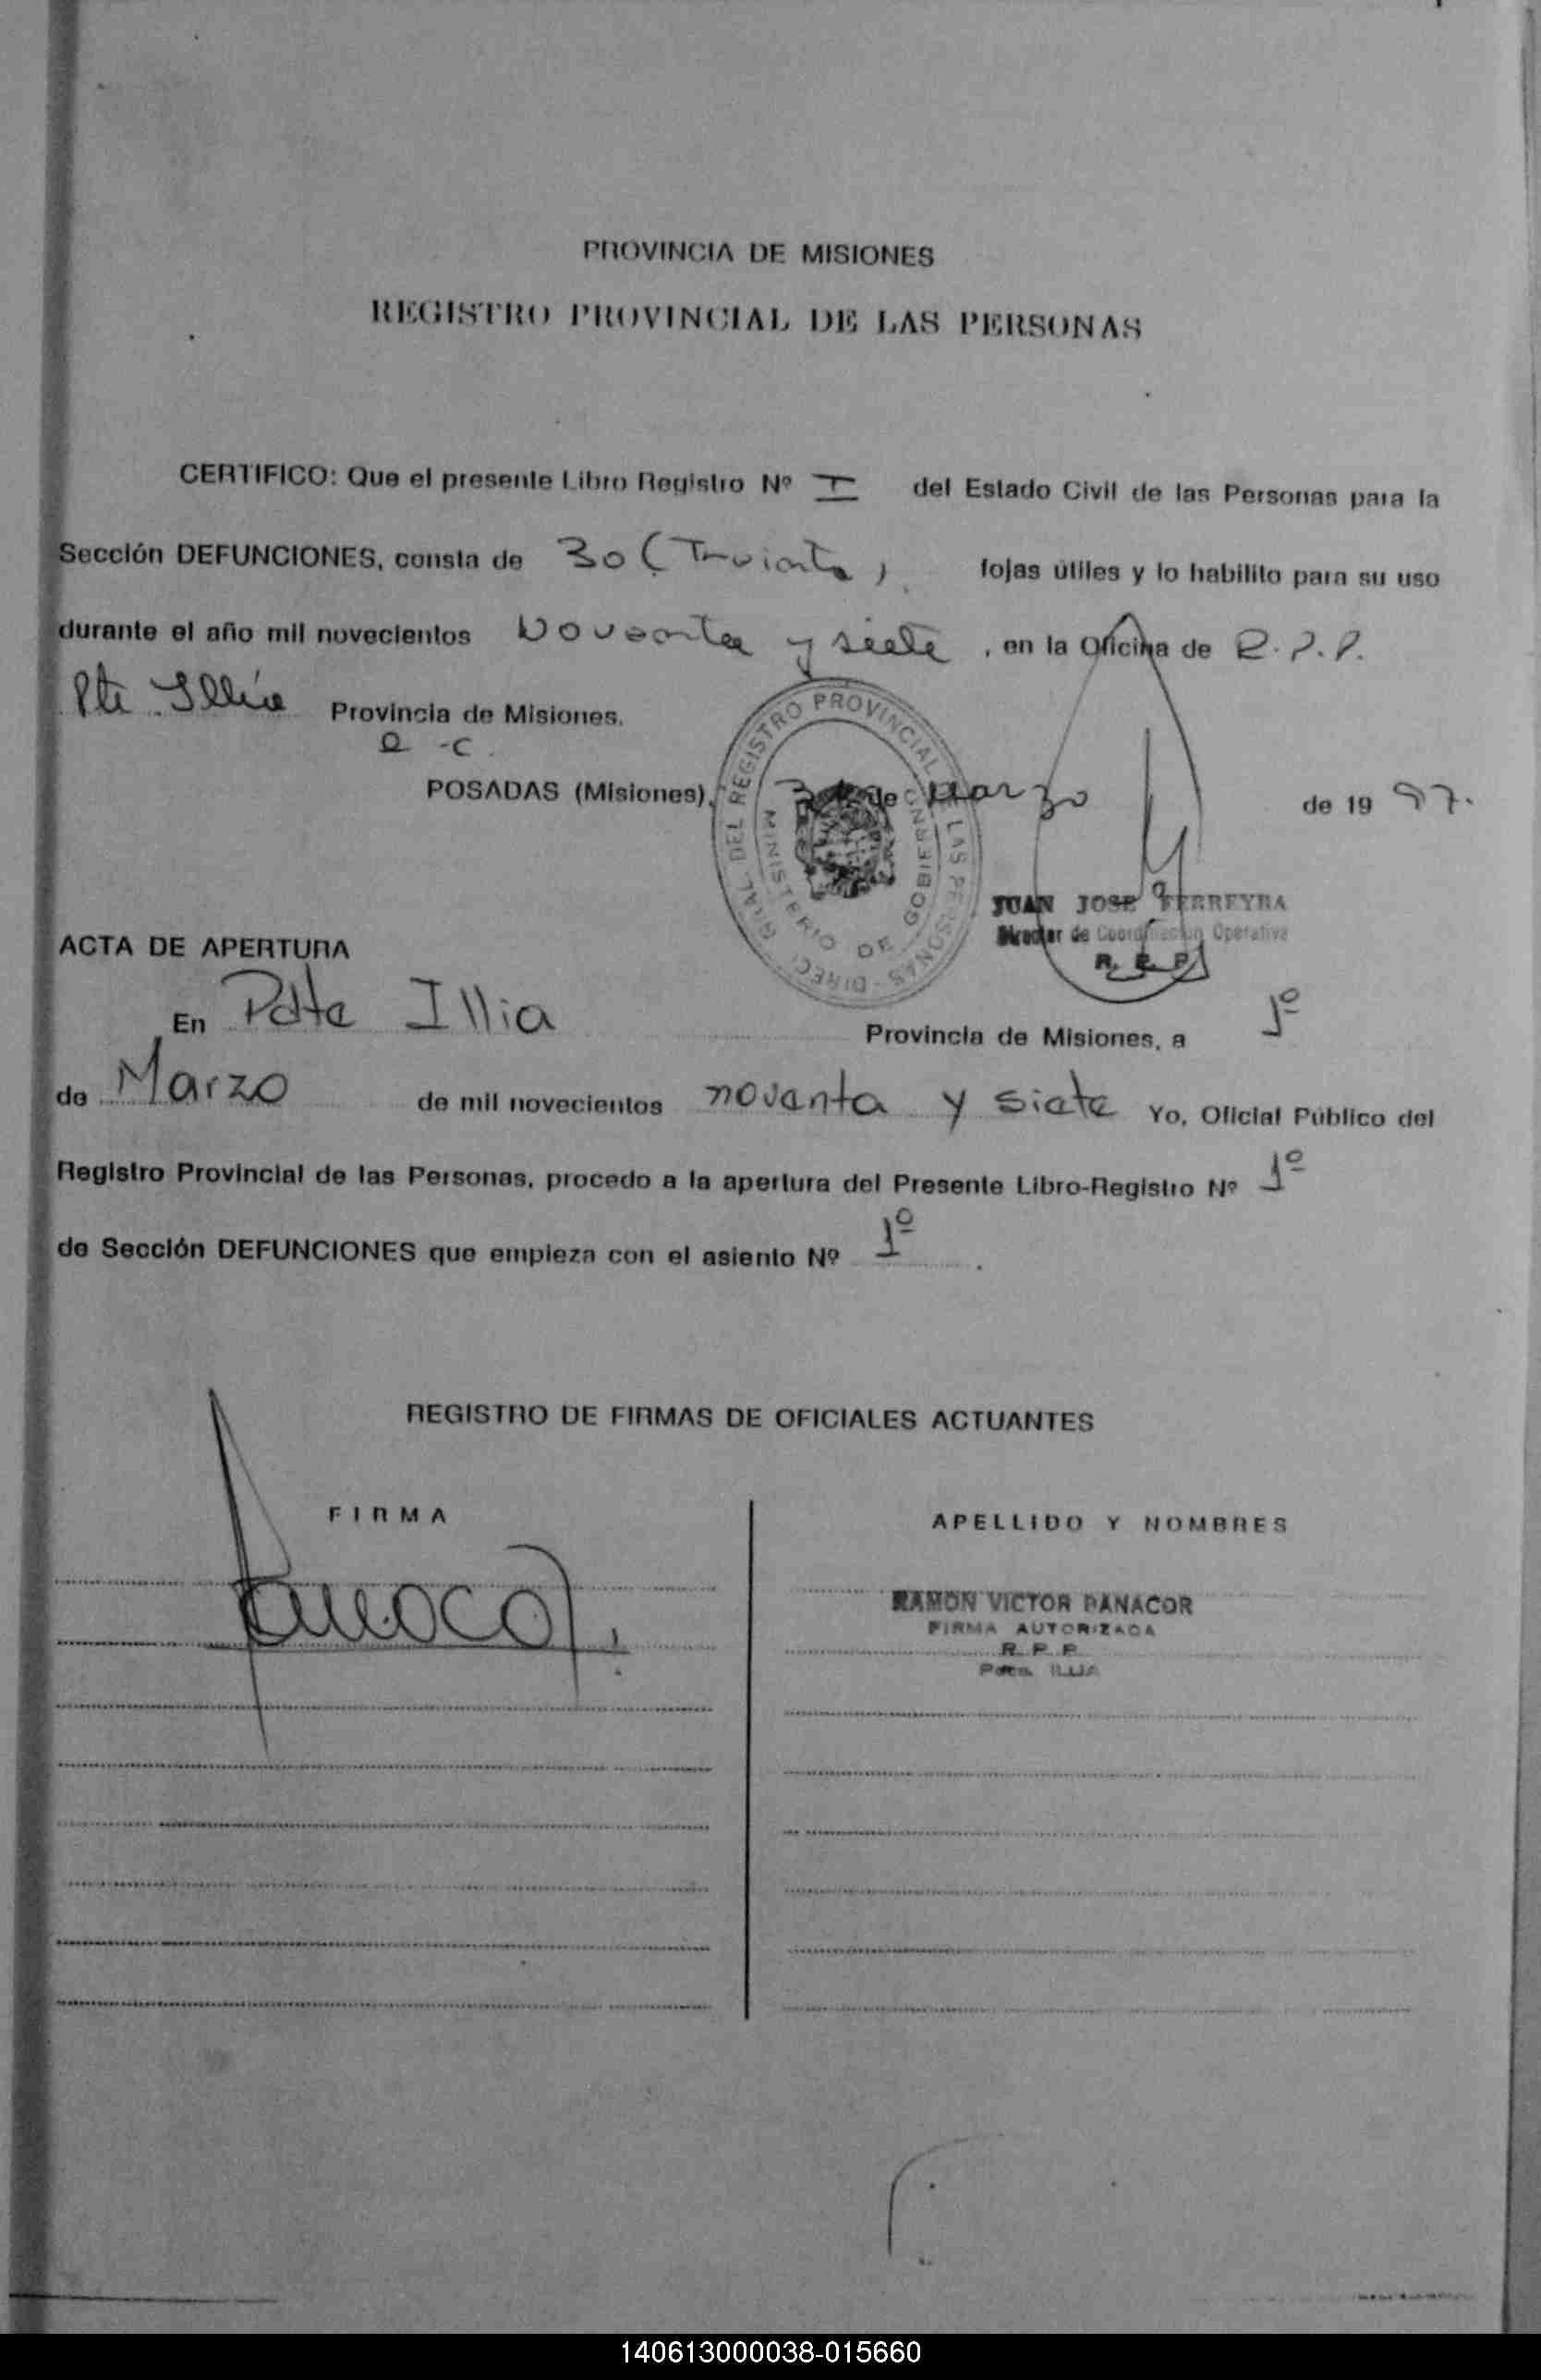 PROVINCIA DE MISIONES
REGISTRO PROVINCIAL DE LAS PERSONAS
CERTIFICO: Que el presente Libro Registro Nº I del Estado Civil de las Personas para la
Sección DEFUNCIONES, consta de 30 (Treinta) fojas útiles y lo habilito para su uso
durante el año mil novecientos Noventa y siete, en la Oficina de R.P.P.
Pte Illia Provincia de Misiones.
POSADAS (Misiones), de Marzo de 19 97.
DIREC. GRAL. DEL REGISTRO PROVINCIAL DE LAS PERSONAS
MINISTERIO DE GOBIERNO
JUAN JOSE FERREYRA
Director de Coordinación Operativa
R. P. P.
ACTA DE APERTURA
En Pdte Illia Provincia de Misiones, a 1º
de Marzo de mil novecientos noventa y siete Yo, Oficial Público del
Registro Provincial de las Personas, procedo a la apertura del Presente Libro-Registro Nº 1º
de Sección DEFUNCIONES que empieza con el asiento Nº 1º.
REGISTRO DE FIRMAS DE OFICIALES ACTUANTES
FIRMA APELLIDO Y NOMBRES
RAMON VICTOR PANACOR
FIRMA AUTORIZADA
R. P. P.
Pdte. ILLIA
140613000038-015660